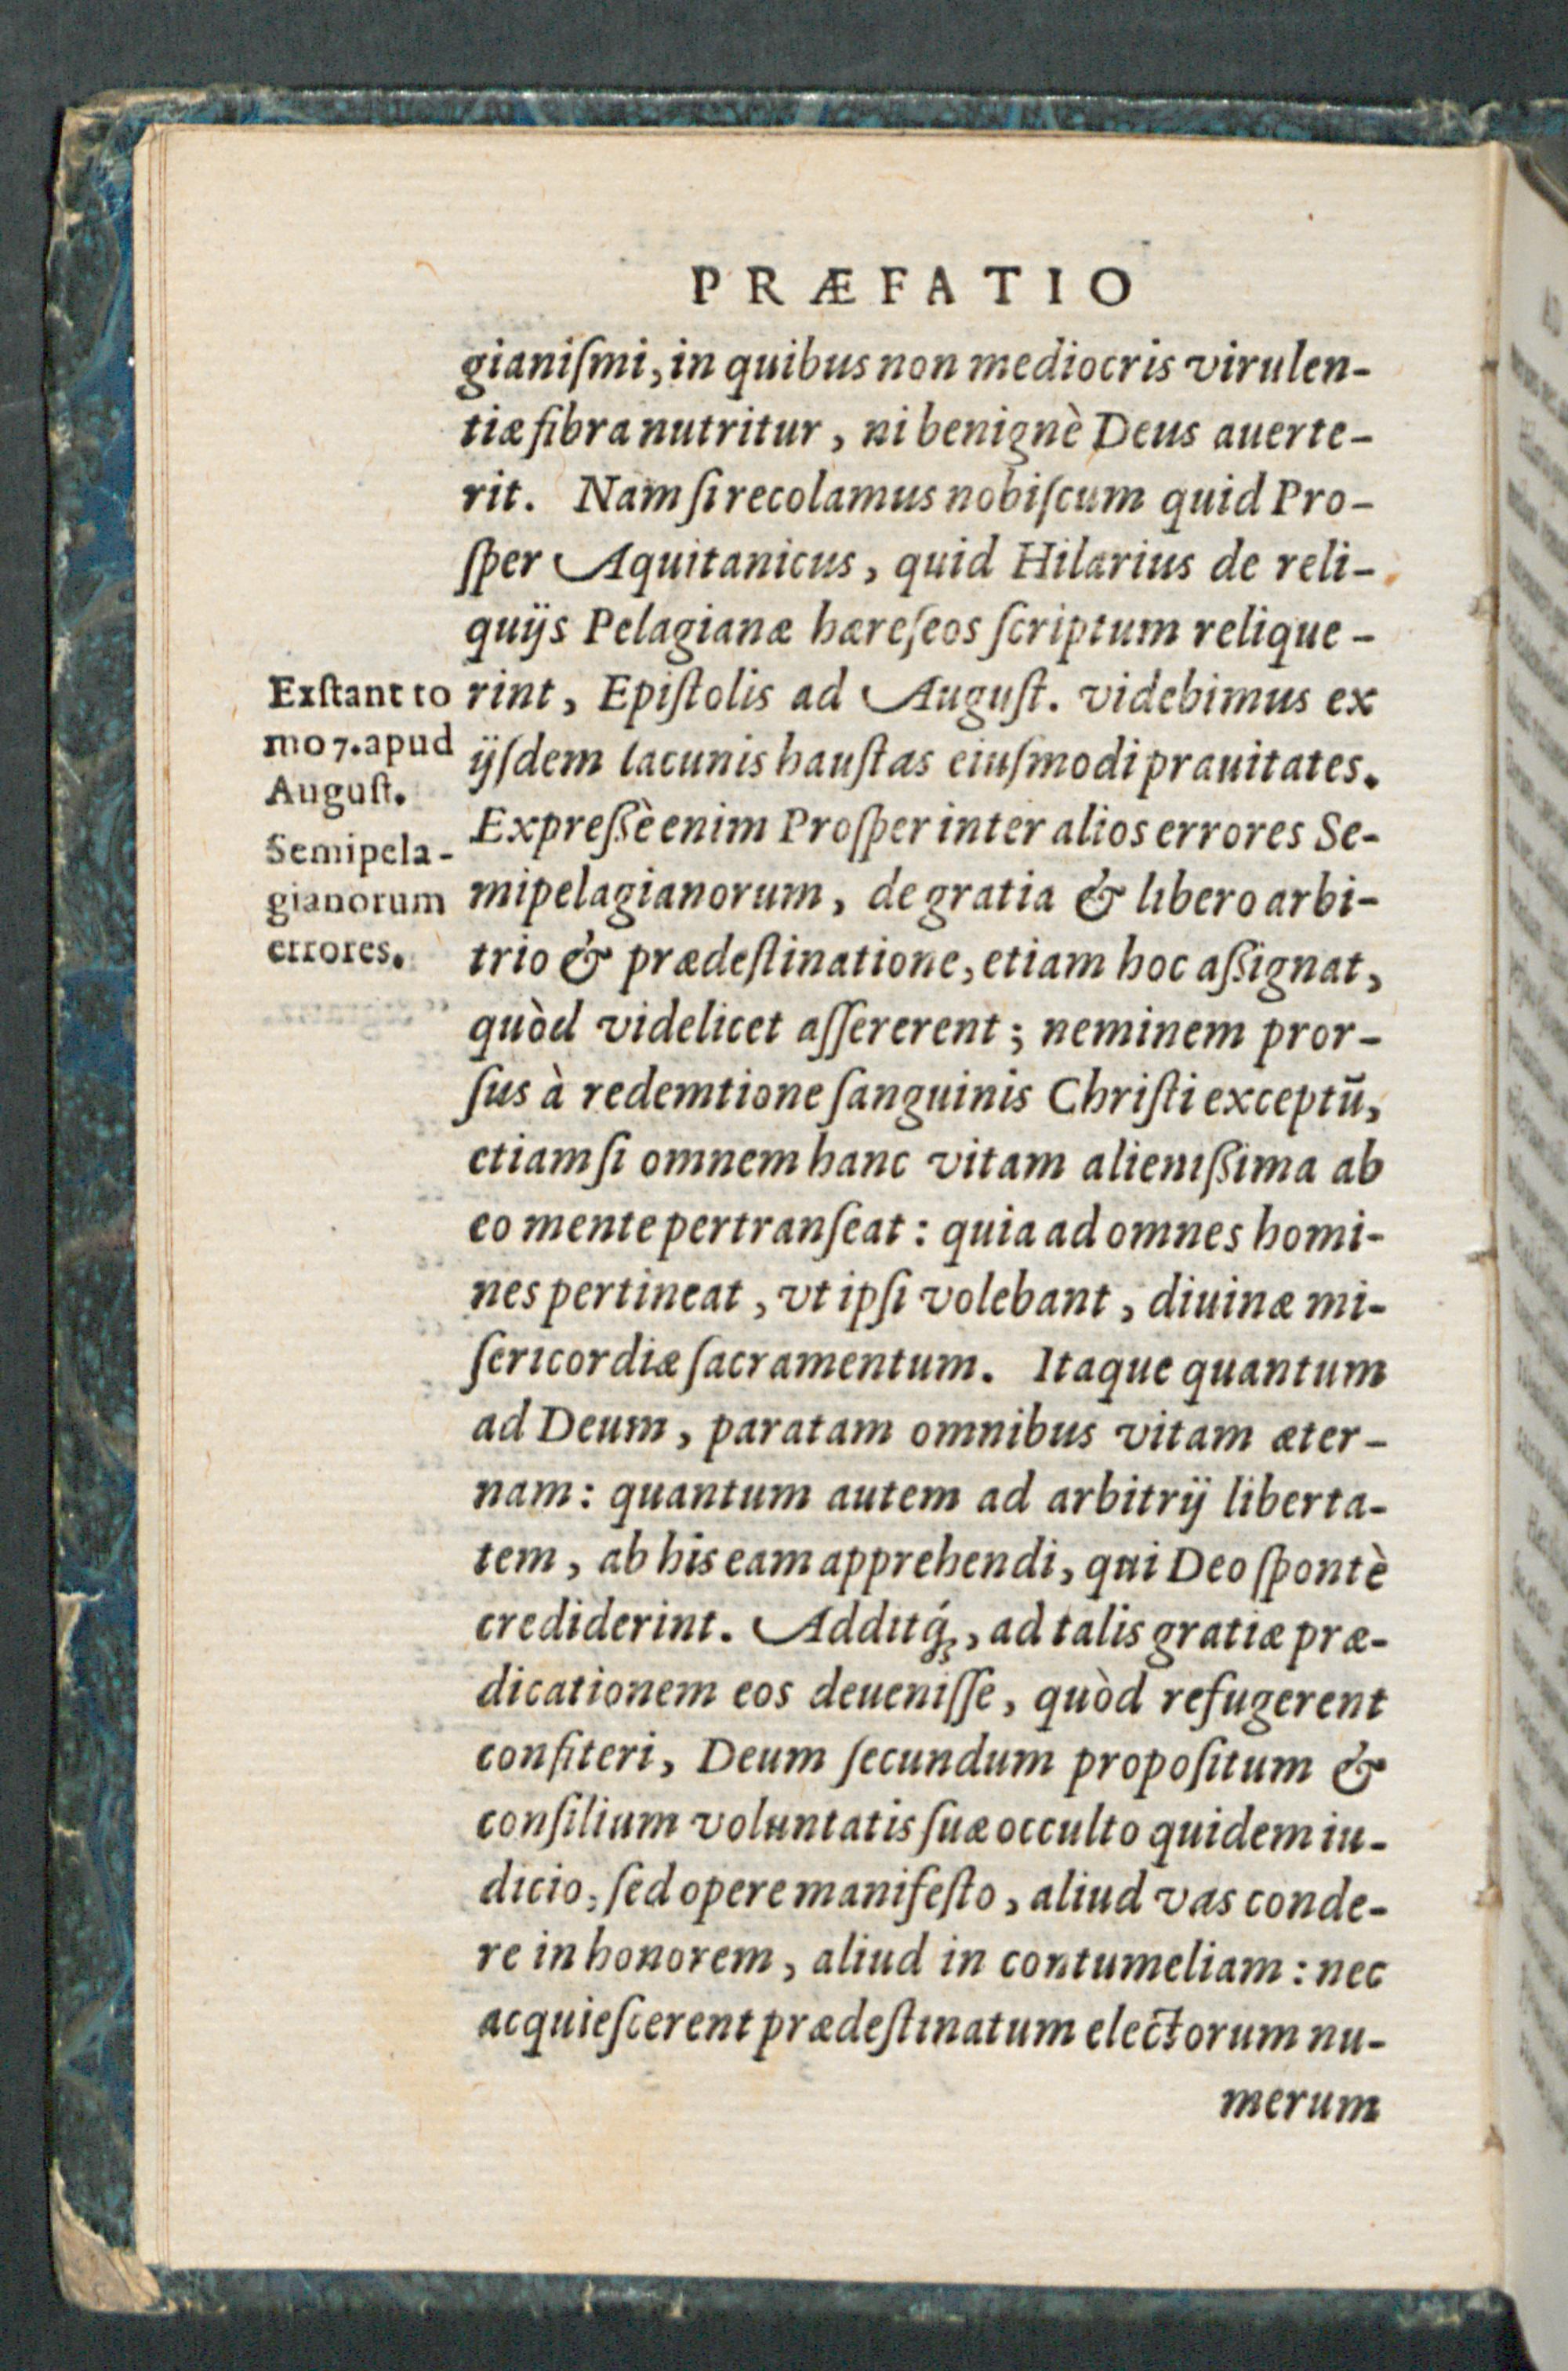 PRÆFATIO
gianiſmi, in quibus non mediocris virulen-
tiæ fibra nutritur, ni benignè Deus auerte-
rit. Nam ſi recolamus nobiſcum quid Pro-
ſper Aquitanicus, quid Hilarius de reli-
quijs Pelagianæ hæreſeos ſcriptum relique-
rint, Epiſtolis ad Auguſt. videbimus ex
ijſdem lacunis hauſtas eiuſmodi prauitates.
Expreßè enim Proſper inter alios errores Se-
mipelagianorum, de gratia & libero arbi-
trio & prædeſtinatione, etiam hoc aßignat,
quòd videlicet aſſererent; neminem pror-
ſus à redemtione ſanguinis Chriſti exceptū,
etiamſi omnem hanc vitam alienißima ab
eo mente pertranſeat: quia ad omnes homi-
nes pertineat, vt ipſi volebant, diuinæ mi-
ſericordiæ ſacramentum. Itaque quantum
ad Deum, paratam omnibus vitam æter-
nam: quantum autem ad arbitrij liberta-
tem, ab his eam apprehendi, qui Deo ſpontè
crediderint. Additq́;, ad talis gratiæ præ-
dicationem eos deueniſſe, quòd refugerent
confiteri, Deum ſecundum propoſitum &
conſilium voluntatis ſuæ occulto quidem iu-
dicio, ſed opere manifeſto, aliud vas conde-
re in honorem, aliud in contumeliam: nec
acquieſcerent prædeſtinatum electorum nu-
merum
Exſtant to
mo 7. apud
Auguſt.
Semipela-
gianorum
errores.